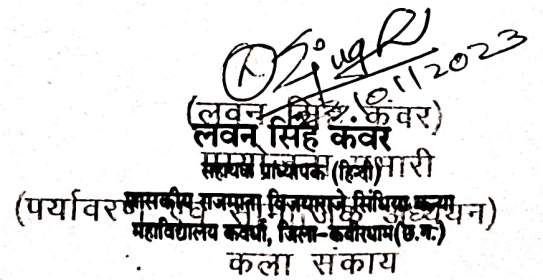 (लवन सिंह कंवर)
लवन सिंह कंवर
सहायक प्राध्यापक (हिन्दी)
शासकीय राजमाता विजयाराजे सिंधिया कन्या
(पर्यावरण एवं अध्ययन)
महाविद्यालय कवर्धा, जिला-कबीरधाम(छ.ग.)
कला संकाय